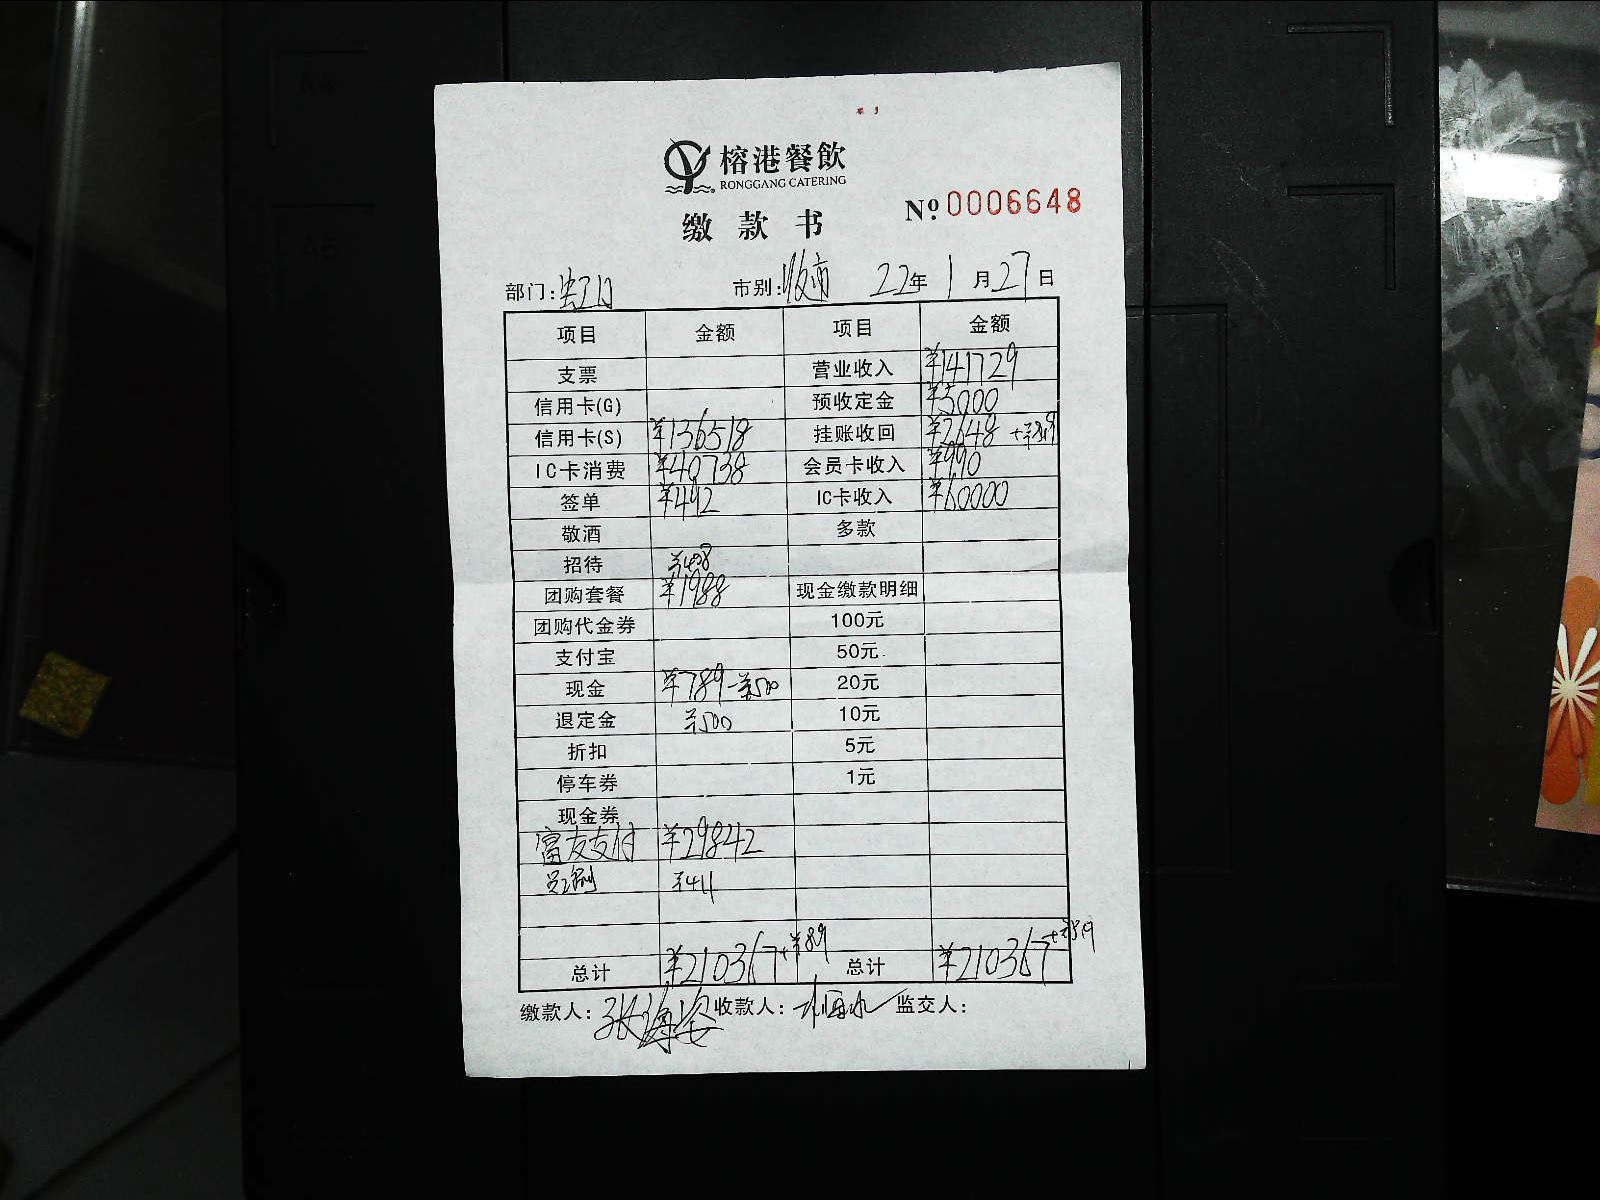 榕港餐飲
RONGGANG CATERING
缴款书
Nº 0006648
部门:虹口 市别:收市 22年1月27日
项目 金额 项目 金额
支票 营业收入 ¥141729
信用卡(G) 预收定金 ¥5000
信用卡(S) ¥136518 挂账收回 ¥2648 +¥819
IC卡消费 ¥40738 会员卡收入 ¥990
签单 ¥492 IC卡收入 ¥60000
敬酒 多款
招待 ¥408
团购套餐 ¥1988 现金缴款明细
团购代金券 100元
支付宝 50元
现金 ¥789-¥500 20元
退定金 ¥500 10元
折扣 5元
停车券 1元
现金券
富友支付 ¥29842
¥411
总计 ¥210367+¥819 总计 ¥210367+¥819
缴款人:张海姿 收款人: 监交人: